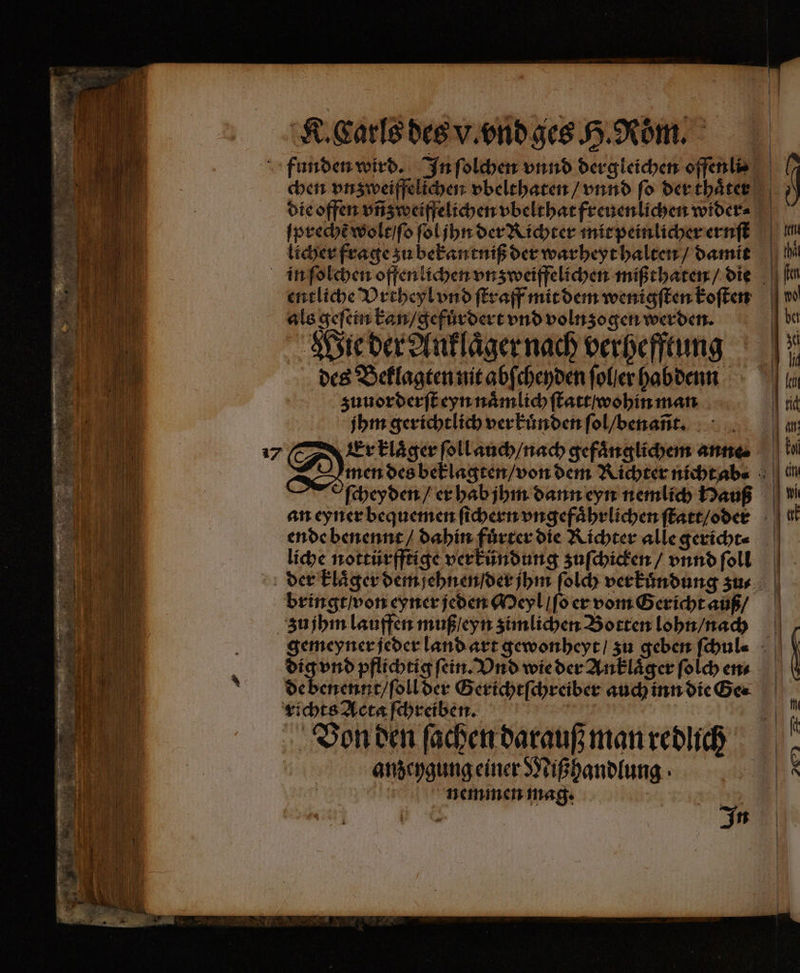 K. Carls des v. vnd ges H. Röm.
funden wird. In ſolchen vnnd dergleichen offenli⸗
chen vnzweiffelichen vbelthaten / vnnd ſo der thaͤter
die offen vñzweiffelichen vbelthat freuenlichen wider⸗
ſprechẽ wolt/ſo ſol jhn der Richter mit peinlicher ernſt
licher frage zu bekantniß der warheyt halten / damit
in ſolchen offenlichen vnzweiffelichen mißthaten / die
entliche Vrtheyl vnd ſtraff mit dem wenigſten koſten
als geſein kan/gefürdert vnd volnzogen werden.
Wie der Anklaͤger nach verhefftung
des Beklagten nit abſcheyden ſol/er hab denn
zuuorderſt eyn naͤmlich ſtatt/wohin man
jhm gerichtlich verkuͤnden ſol/benañt.
17 DEr klaͤger ſoll auch/nach gefaͤnglichem anne⸗
men des beklagten/von dem Richter nicht ab⸗
ſcheyden / er hab jhm dann eyn nemlich Hauß
an eyner bequemen ſichern vngefaͤhrlichen ſtatt/oder
ende benennt / dahin fuͤrter die Richter alle gericht⸗
liche nottürfftige verkündung zuſchicken / vnnd ſoll
der klaͤger dem jehnen/der jhm ſolch verkuͤndung zu⸗
bringt/von eyner jeden Meyl / ſo er vom Gericht auß/
zu jhm lauffen muß/eyn zimlichen Botten lohn/nach
gemeyner jeder land art gewonheyt / zu geben ſchul⸗
dig vnd pflichtig ſein. Vnd wie der Anklaͤger ſolch en⸗
de benennt/ſoll der Gerichtſchreiber auch inn die Ge⸗
richts Acta ſchreiben.
Von den ſachen darauß man redlich
anzeygung einer Mißhandlung
nemmen mag.
In